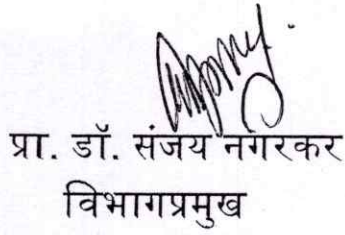 प्रा. डॉ. संजय नगरकर
विभागप्रमुख